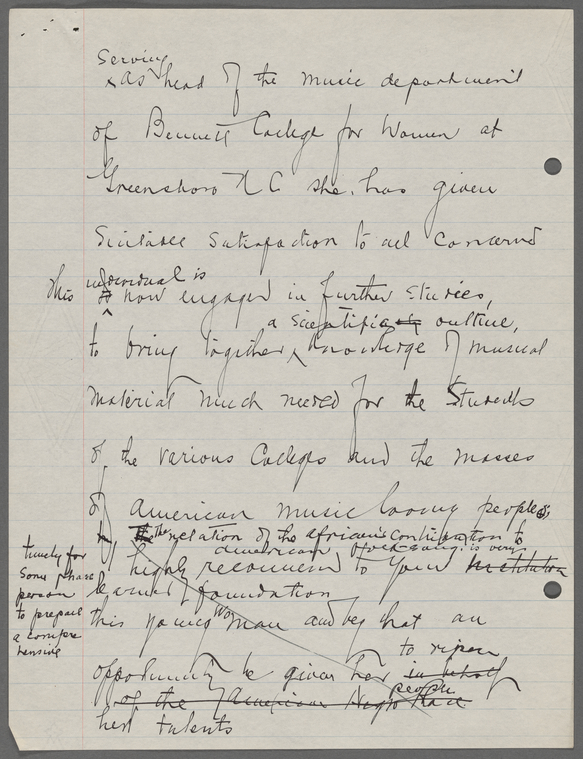 Serving
x As head of the music department
of Bennett College for Women at
Greensboro N C she has given
satisfaction to all concerned
This individual is
now engaged in further studies,
a scientific outline,
to bring together knowledge of musical
material much needed for the students
of the various Colleges and the masses
of American music loving people,
the relation of the african's contribution to
american folk song. is very
timely for
Some
person
to prepare
a compre
hensive
highly recommend to your institution
learned foundation
this young woman and beg that an
to ripen
opportunity be given her in behalf
people
of the American Negro Race
her talents